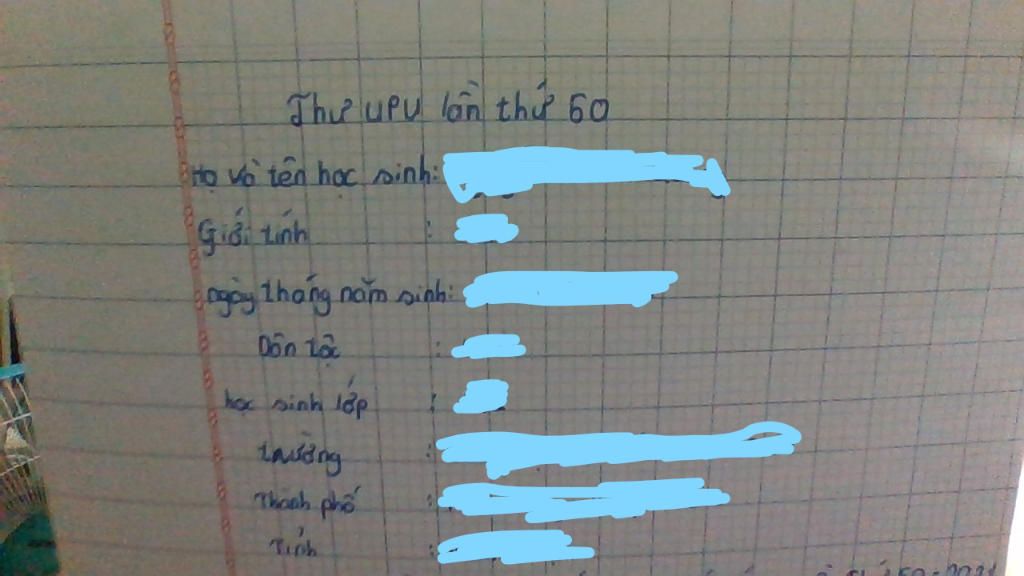 Thư UPU lần thứ 50
Họ và tên học sinh:
Giới tính :
ngày tháng năm sinh:
Dân tộc :
học sinh lớp :
trường :
Thành phố :
Tỉnh :